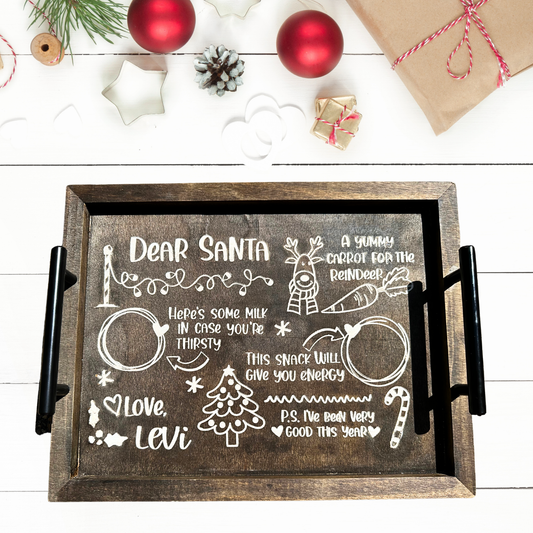 DEAR SANTA
A YUMMY
CARROT FOR THE
REINDEER
HERE'S SOME MILK
IN CASE YOU'RE
THIRSTY
THIS SNACK WILL
GIVE YOU ENERGY
LOVE,
LEVI
P.S. I'VE BEEN VERY
GOOD THIS YEAR